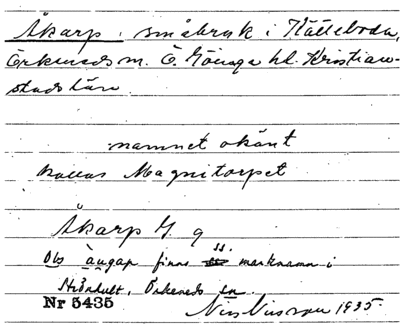 Åkarp. småbruk i Hätteboda,
Örkeneds sn. Ö. Göinge hd. Kristian-
stads län.
namnet okänt
kallas Magnitorpet
Åkarp G. 9
Obs finns ss. marknamn i
Örkeneds sn
Nr 5435 Nils Nilsson 1935.